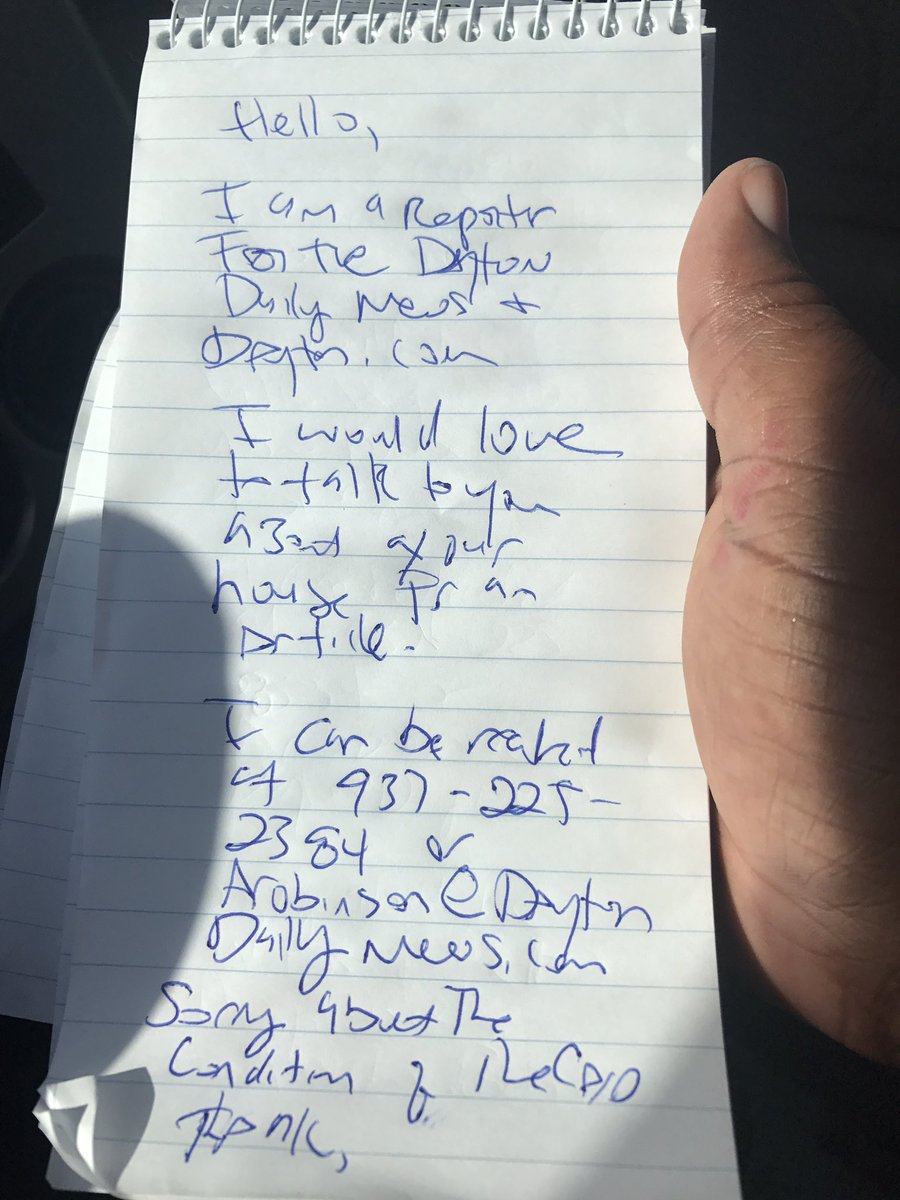 Hello,
I am a Reporter
For the Dayton
Daily News +
Dayton.com
I would love
to talk to you
about your
house for an
article.
I can be reached
at 937-225-
2384 or
Arobinson@Dayton
Daily News.com
Sorry about The
Condition of The